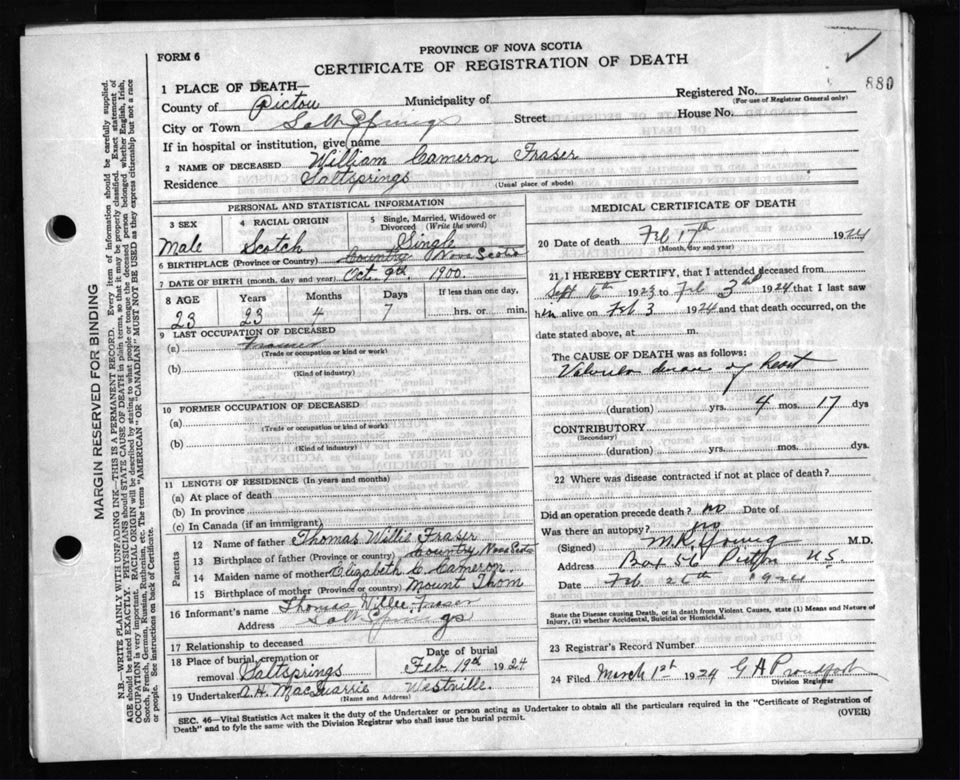 FORM 6
PROVINCE OF NOVA SCOTIA
CERTIFICATE OF REGISTRATION OF DEATH
880
1 PLACE OF DEATH—
County of Pictou Municipality of
Registered No.
(For use of Registrar General only)
City or Town Salt Springs Street House No.
If in hospital or institution, give name
2 NAME OF DECEASED William Cameron Fraser
Residence Saltsprings (Usual place of abode)
PERSONAL AND STATISTICAL INFORMATION
3 SEX Male
4 RACIAL ORIGIN Scotch
5 Single, Married, Widowed or Divorced (Write the word) Single
6 BIRTHPLACE (Province or Country) Country Nova Scotia
7 DATE OF BIRTH (month, day and year) Oct 9th 1900.
8 AGE Years Months Days If less than one day,
23 23 4 7 hrs. or min.
9 LAST OCCUPATION OF DECEASED
(a)
(Trade or occupation or kind or work)
(b)
(Kind of industry)
10 FORMER OCCUPATION OF DECEASED
(a)
(Trade or occupation or kind or work)
(b)
(Kind of industry)
11 LENGTH OF RESIDENCE (In years and months)
(a) At place of death
(b) In province
(c) In Canada (if an immigrant)
Parents
12 Name of father Thomas Willie Fraser
13 Birthplace of father (Province or country) Country Nova Scotia
14 Maiden name of mother Elizabeth C. Cameron.
15 Birthplace of mother (Province or country) Mount Thom
16 Informant's name Thomas Willie Fraser
Address Salt Springs
17 Relationship to deceased
18 Place of burial, cremation or removal Saltsprings
Date of burial Feb 19th 1924
19 Undertaker A.H. MacQuarrie Westville.
(Name and Address)
MEDICAL CERTIFICATE OF DEATH
20 Date of death Feb 17th 1924
(Month, day and year)
21 I HEREBY CERTIFY, that I attended deceased from
Sept 16th 1923 to Feb 3rd 1924 that I last saw
him alive on Feb 3 1924 and that death occurred, on the
date stated above, at m.
The CAUSE OF DEATH was as follows:
Valvular disease of Heart
(duration) yrs. 4 mos. 17 dys
CONTRIBUTORY
(Secondary)
(duration) yrs. mos. dys.
22 Where was disease contracted if not at place of death?
Did an operation precede death? no Date of
Was there an autopsy? no
(Signed) M.R. Young M.D.
Address Box 56 Pictou
Date Feb. 26th 1924
State the Disease causing Death, or in death from Violent Causes, state (1) Means and Nature of
Injury, (2) whether Accidental, Suicidal or Homicidal.
23 Registrar's Record Number
24 Filed March 1st 1924 G A Proudfoot
Division Registrar
SEC. 46—Vital Statistics Act makes it the duty of the Undertaker or person acting as Undertaker to obtain all the particulars required in the "Certificate of Registration of
Death" and to fyle the same with the Division Registrar who shall issue the burial permit. (OVER)
MARGIN RESERVED FOR BINDING
N.B.—WRITE PLAINLY WITH UNFADING INK—THIS IS A PERMANENT RECORD. Every item of information should be carefully supplied.
AGE should be stated EXACTLY. PHYSICIANS should STATE CAUSE OF DEATH in plain terms, so that it may be properly classified. Exact statement of
OCCUPATION is very important. RACIAL ORIGIN will be described by stating to what people or tongue the deceased person belonged whether English, Irish,
Scotch, French, German, Russian, Ruthenian, etc. The terms "AMERICAN" OR "CANADIAN" MUST NOT BE USED as they express citizenship but not a race
or people. See instructions on back of Certificate.